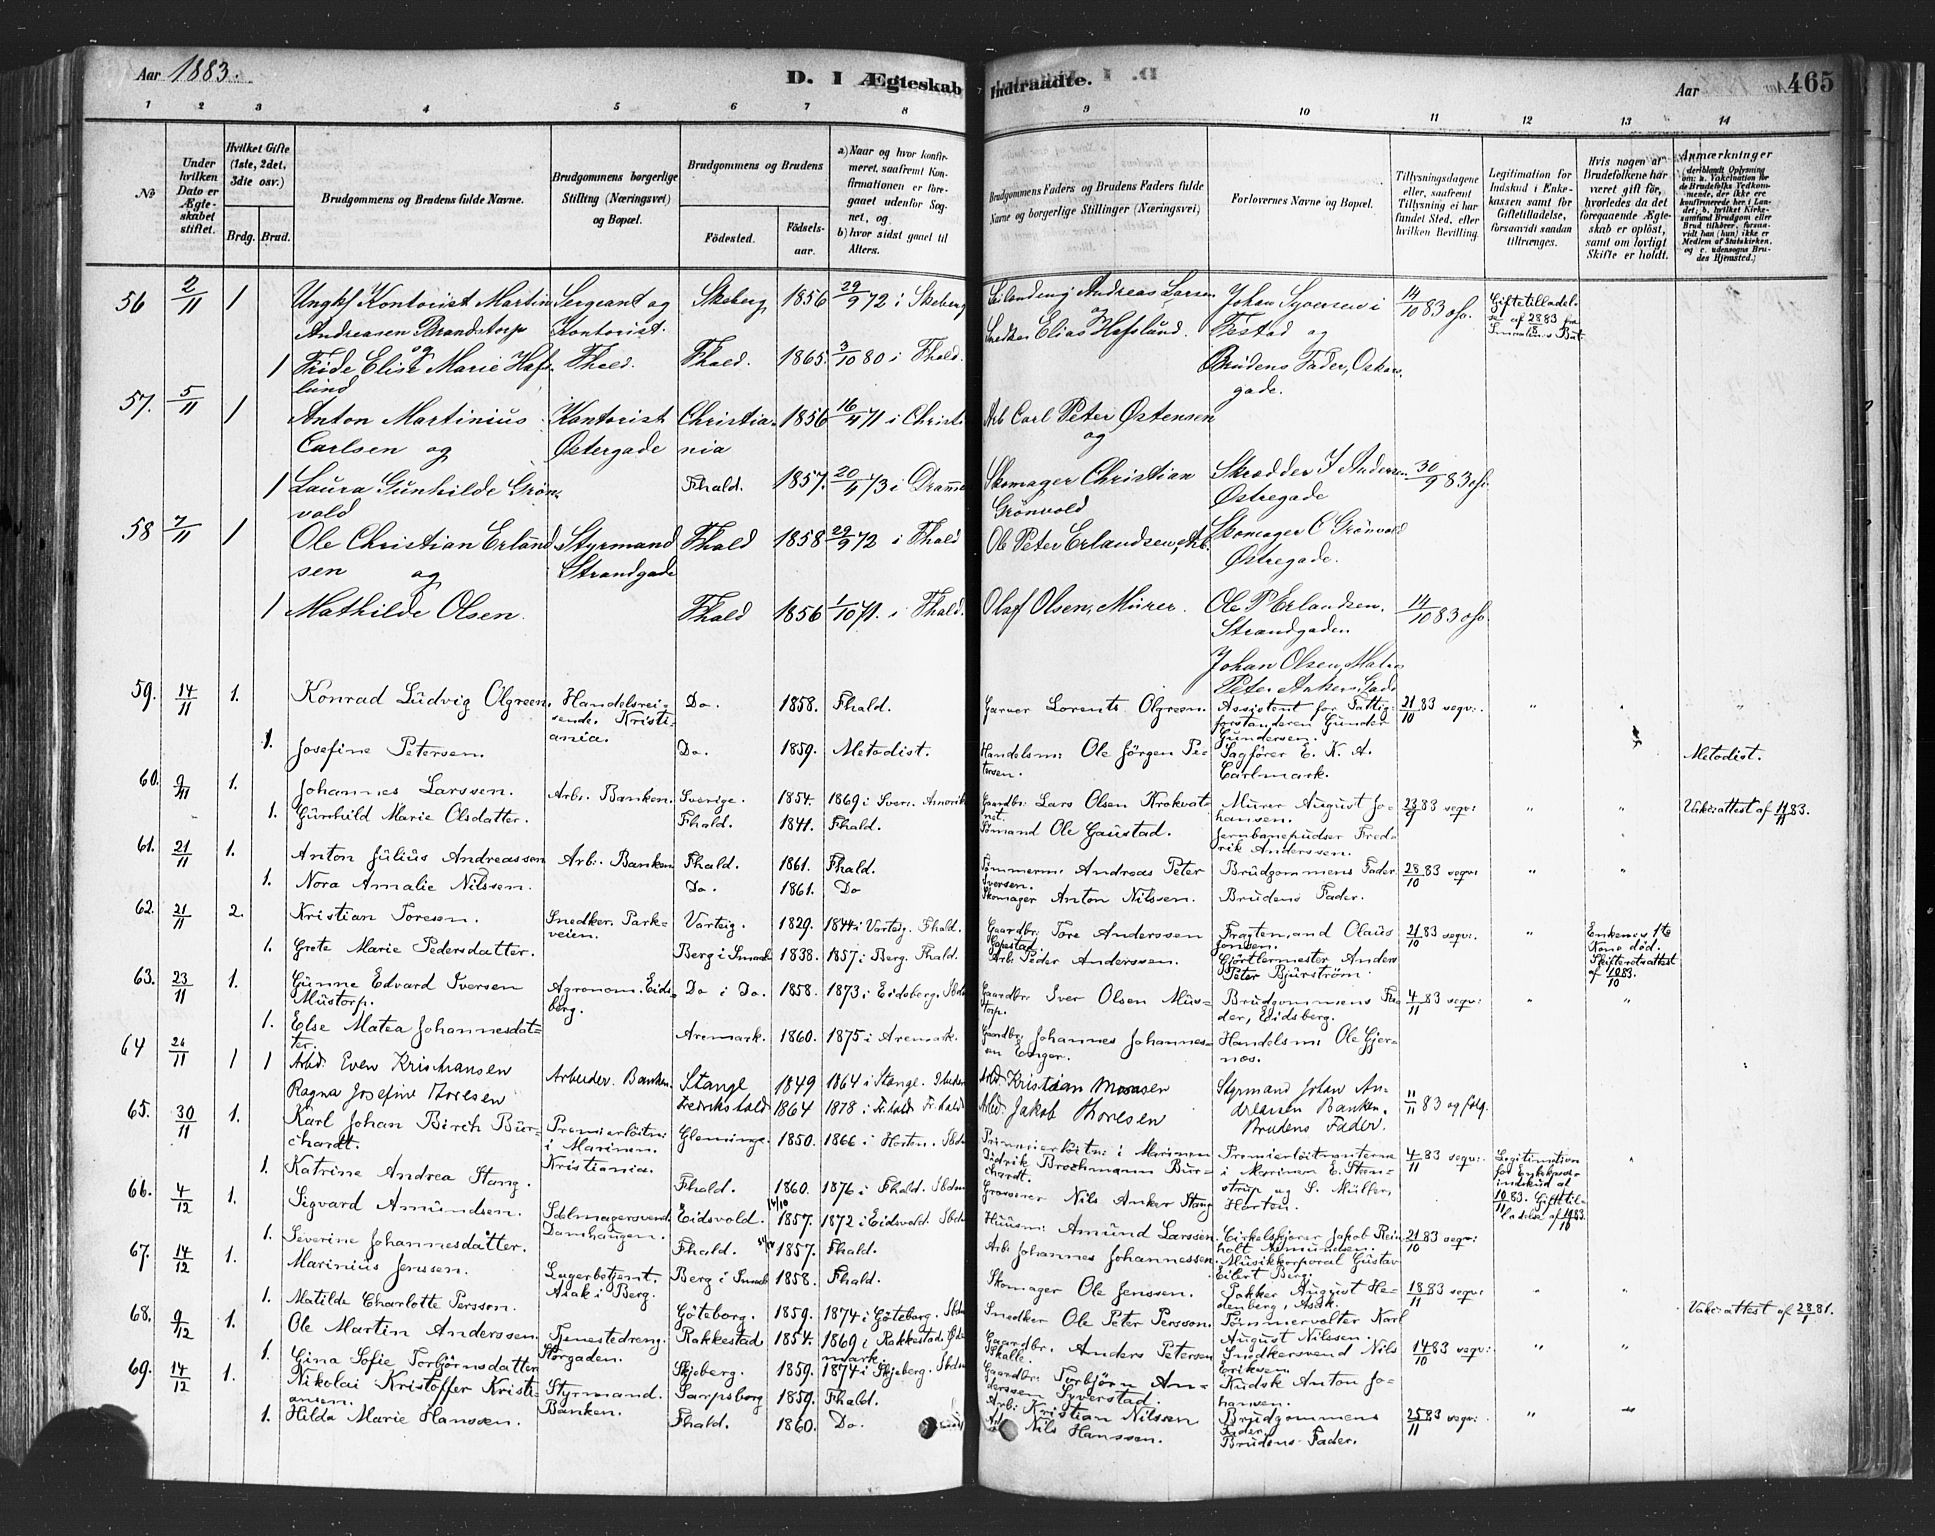 Aar 1883.
D. I Ægteskab Indtraadte.
Aar 465
1 2 3 4 5 6 7 8 9 10 11 12 13 14
No
Under hvilken Dato er Ægteskabet stiftet.
Hvilket Gifte (1ste, 2det, 3die osv.)
Brdg. Brud.
Brudgommens og Brudens fulde Navne.
Brudgommens borgerlige Stilling (Næringsvei) og Bopæl.
Brudgommens og Brudens
Fødested. Fødselsaar.
a) Naar og hvor konfirmeret, saafremt Konfirmationen er foregaaet udenfor Sognet, og
b) hvor sidst gaaet til Alters.
Brudgommens Faders og Brudens Faders fulde Navne og borgerlige Stillinger (Næringsvei)
Forlovernes Navne og Bopæl.
Tillysningsdagene eller, saafremt Tillysning ei har fundet Sted, efter hvilken Bevilling.
Legitimation for Indskud i Enkekassen samt for Giftetilladelse, forsaavidt saadan tiltrænges.
Hvis nogen af Brudefolkene har været gift før, hvorledes da det foregaaende Ægteskab er opløst, samt om lovligt Skifte er holdt.
Anmærkninger (deriblandt Oplysning om: a. Vakcination for de Brudefolks Vedkommende, der ikke ere konfirmerede her i Landet; b. hvilket Kirkesamfund Brudgom eller Brud tilhører, forsaavidt han (hun) ikke er Medlem af Statskirken, og c. udensogns Brudes Hjemsted.)
56 2/11 1 Ungkf Kontorist Martin Andreasen Brandstorp og Sergeant og Kontorist. Skeberg 1856 29/9 72 i Skeberg Andreas Larsen og Johan Syversen i Festad og 14/10 83 osv. Giftetilladelse af 28/8 83 fra Smaalenes Bat
1 Frøde Elise Marie Hafslund Fhald. Fhald. 1865. 3/10 80 i Fhald. Snedker Elias Hafslund. Brudens Fader, Oskarsgade.
57. 5/11 1 Anton Martinius Carlsen og Kontorist Østergade Christiania 1856 16/4 71 i Christi Arb Carl Peter Østensen og
1 Laura Gunhilde Grönvold Fhald. 1857. 20/4 73 i Dramme Skomager Christian Grönvold Skrædder J Andersen Østregade 30/9 83 osv.
Skomager C Grönvold Østregade.
58 7/11 1 Ole Christian Erlandsen og Styrmand Strandgade Fhald 1858 29/9 72 i Fhald Ole Peter Erlandsen, Arb.
1 Mathilde Olsen. Fhald 1856 1/10 71. i Fhald. Olaf Olsen, Murer. Ole P Erlandsen, Strandgaden 14/10 83 osv.
Johan Olsen, Mater Peter Ankers Gade
59. 14/11 1. Konrad Ludvig Olgreen. Handelsreisende. Kristiania. Do. 1858. Fhald. Garver Lorents Olgreen. Assistent for Fattigforstanderen Gunder Gundersen. 21/10 83 segv:. " " "
1. Josefine Petersen. Do. 1859. Metodist. Handelsm: Ole Jörgen Petersen. Sagförer E. K. A. Carlmark. Metodist.
60. 9/11 1. Johannes Larssen. Arb. Banken. Sverige. 1854. 1869 i Sver. Amerik Gaardbr: Lars Olsen Murer August Johansen. 23/9 83 segv: " " Vakc:attest af 1/11 83.
1. Gunhild Marie Olsdatter. Fhald. 1841. Fhald. Sömand Ole Gaustad. Jernbanepudser Fredrik Anderssen.
61. 21/11 1. Anton Julius Andreassen Arb. Banken Fhald. 1861. Fhald. Tömmerm: Andreas Peter Iversen. Brudgommens Fader. 28/10 83 segv: " "
1. Nora Amalie Nilssen. Do. 1861. Do Skomager Anton Nilssen. Brudens Fader.
62. 21/11 2. Kristian Toresen. Snedker. Parkveien. Varteig. 1829. 1844 i Varteig. Fhald. Gaardbr: Tore Anderssen Fragtemand Olaus Jonsen. 21/10 83 segv: " Enkemds 1te Kone död. Skifteretsattest af 10/10 83.
1. Grete Marie Pedersdatter. Berg i Smaal. 1838. 1857 i Berg. Fhald. Arb. Peder Anderssen. Gjörtlermester Anders Peter Bjurström.
63. 23/11 1. Gunne Edvard Iversen Mustorp. Agronom. Eidsberg. Do i Do. 1858. 1873 i Eidsberg. Sbds Gaardbr: Iver Olsen Mustorp. Brudgommens Fader, Eidsberg. 4/11 83 segv: " "
1. Else Matea Johannesdatter. Aremark. 1860. 1875 i Aremark. Gaardbr: Johannes Johannesen Enger. Handelsm: Ole Gjernæs.
64 26/11 1 1 Arbd: Even Kristiansen Arbeider. Banken. Stange 1849 1864 i Stange. Sbdem Arbd Kristian Monsen Styrmand Johan Andreassen Banken. 11/11 83 og følg.
Ragna Josefine Thoresen Fredrikshald 1864 1878 i Fr:hald Fr:hald Arbd Jakob Thoresen Brudens Fader.
65. 30/11 1. Karl Johan Birch Burchardt. Premierlöitn: i Marinen. Kristiania. Glemminge. 1850. 1866 i Horten. Sbdm Premierlöitn: i Marinen Didrik Brochmann Burchardt. Premierlöitnanterne i Marinen E. Stenstrup og S. Müller, Horten. 4/11 83 segv: Legitimation for Enkekasseindskud af 10/11 83. Giftetilladelse af 19/10 83. "
1. Katrine Andrea Stang. Fhald. 1860. 1876 i Fhald. Sbdm Grosserer Nils Anker Stang
66. 4/12 1. Sigvard Amundsen. Sdlmagersvend. Damhaugen. Eidsvold. 14/10 1857. 1872 i Eidsvold. Sbdm Huusm: Amund Larssen. Cirkelskjører Jakob Reinholt Asmundsen. 21/10 83 segv:
1. Severine Johannesdatter. Fhald. 1857. Fhald. Arb: Johannes Johannessen. Musikkorporal Gustav Eilert Berg.
67. 14/12 1. Marinius Jenssen. Lagerbetjent. Asak i Berg. Berg i Smaal 1858. Fhald. Skomager Ole Jenssen. Pakker August Hedenberg, Asak. 18/11 83 segv: " "
1. Matilde Charlotte Persson. Göteborg. 1859. 1874 i Göteborg. Sbdm Snedker Ole Peter Persson. Tömmervalter Karl August Nilssen. Vakc:attest af 28/1 81.
68. 9/12 1. Ole Martin Anderssen. Tjenestedreng. Storgaden. Rakkestad 1854. 1869 i Rakkestad. Gaardbr. Anders Petersen Skalle. Snedkersvend Nils Eriksen. 14/10 83 segv: " "
1. Gina Sofie Torbjörnsdatter Skjeberg. 1859. 1874 i Skjeberg. Sbdm Gaardbr: Torbjörn Anderssen Syverstad. Kudsk Anton Johansen.
69. 14/12 1. Nikolai Kristoffer Kristiansen. Styrmand. Banken. Sarpsborg 1859. Fhald. Arb: Kristian Nilssen Brudgommens Fader. 25/11 83 segv: " "
1. Hilda Marie Hanssen. Fhald. 1860. Do. Nils Hanssen. Brudens Fader.